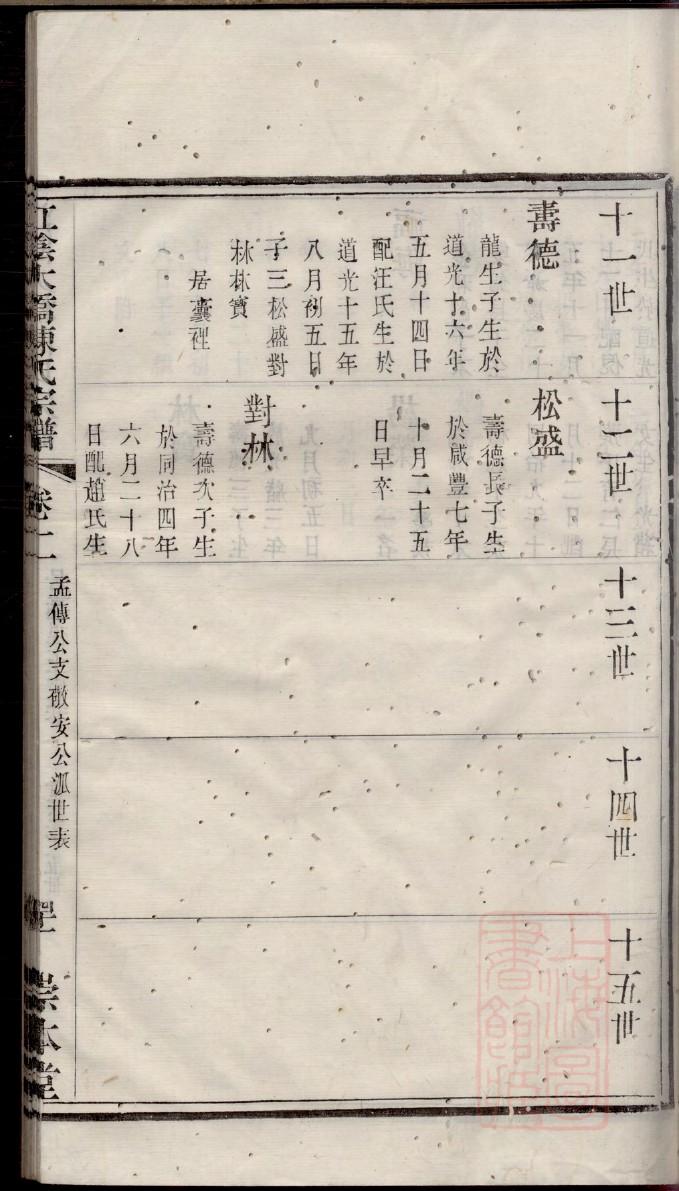 十一世
壽德
龍生子生於
道光十六年
五月十四日
配汪氏生於
道光十五年
八月初五日
子三松盛對
林林寳
居囊裡
十二世
松盛
壽德長子生
於咸豐七年
十月二十五
日早卒
對林
壽德次子生
於同治四年
六月二十八
日配趙氏生
十三世
十四世
十五世
江陰大橋陳氏宗譜
卷十二
孟傳公支敬安公派世表
崇本堂
上海圖書館藏